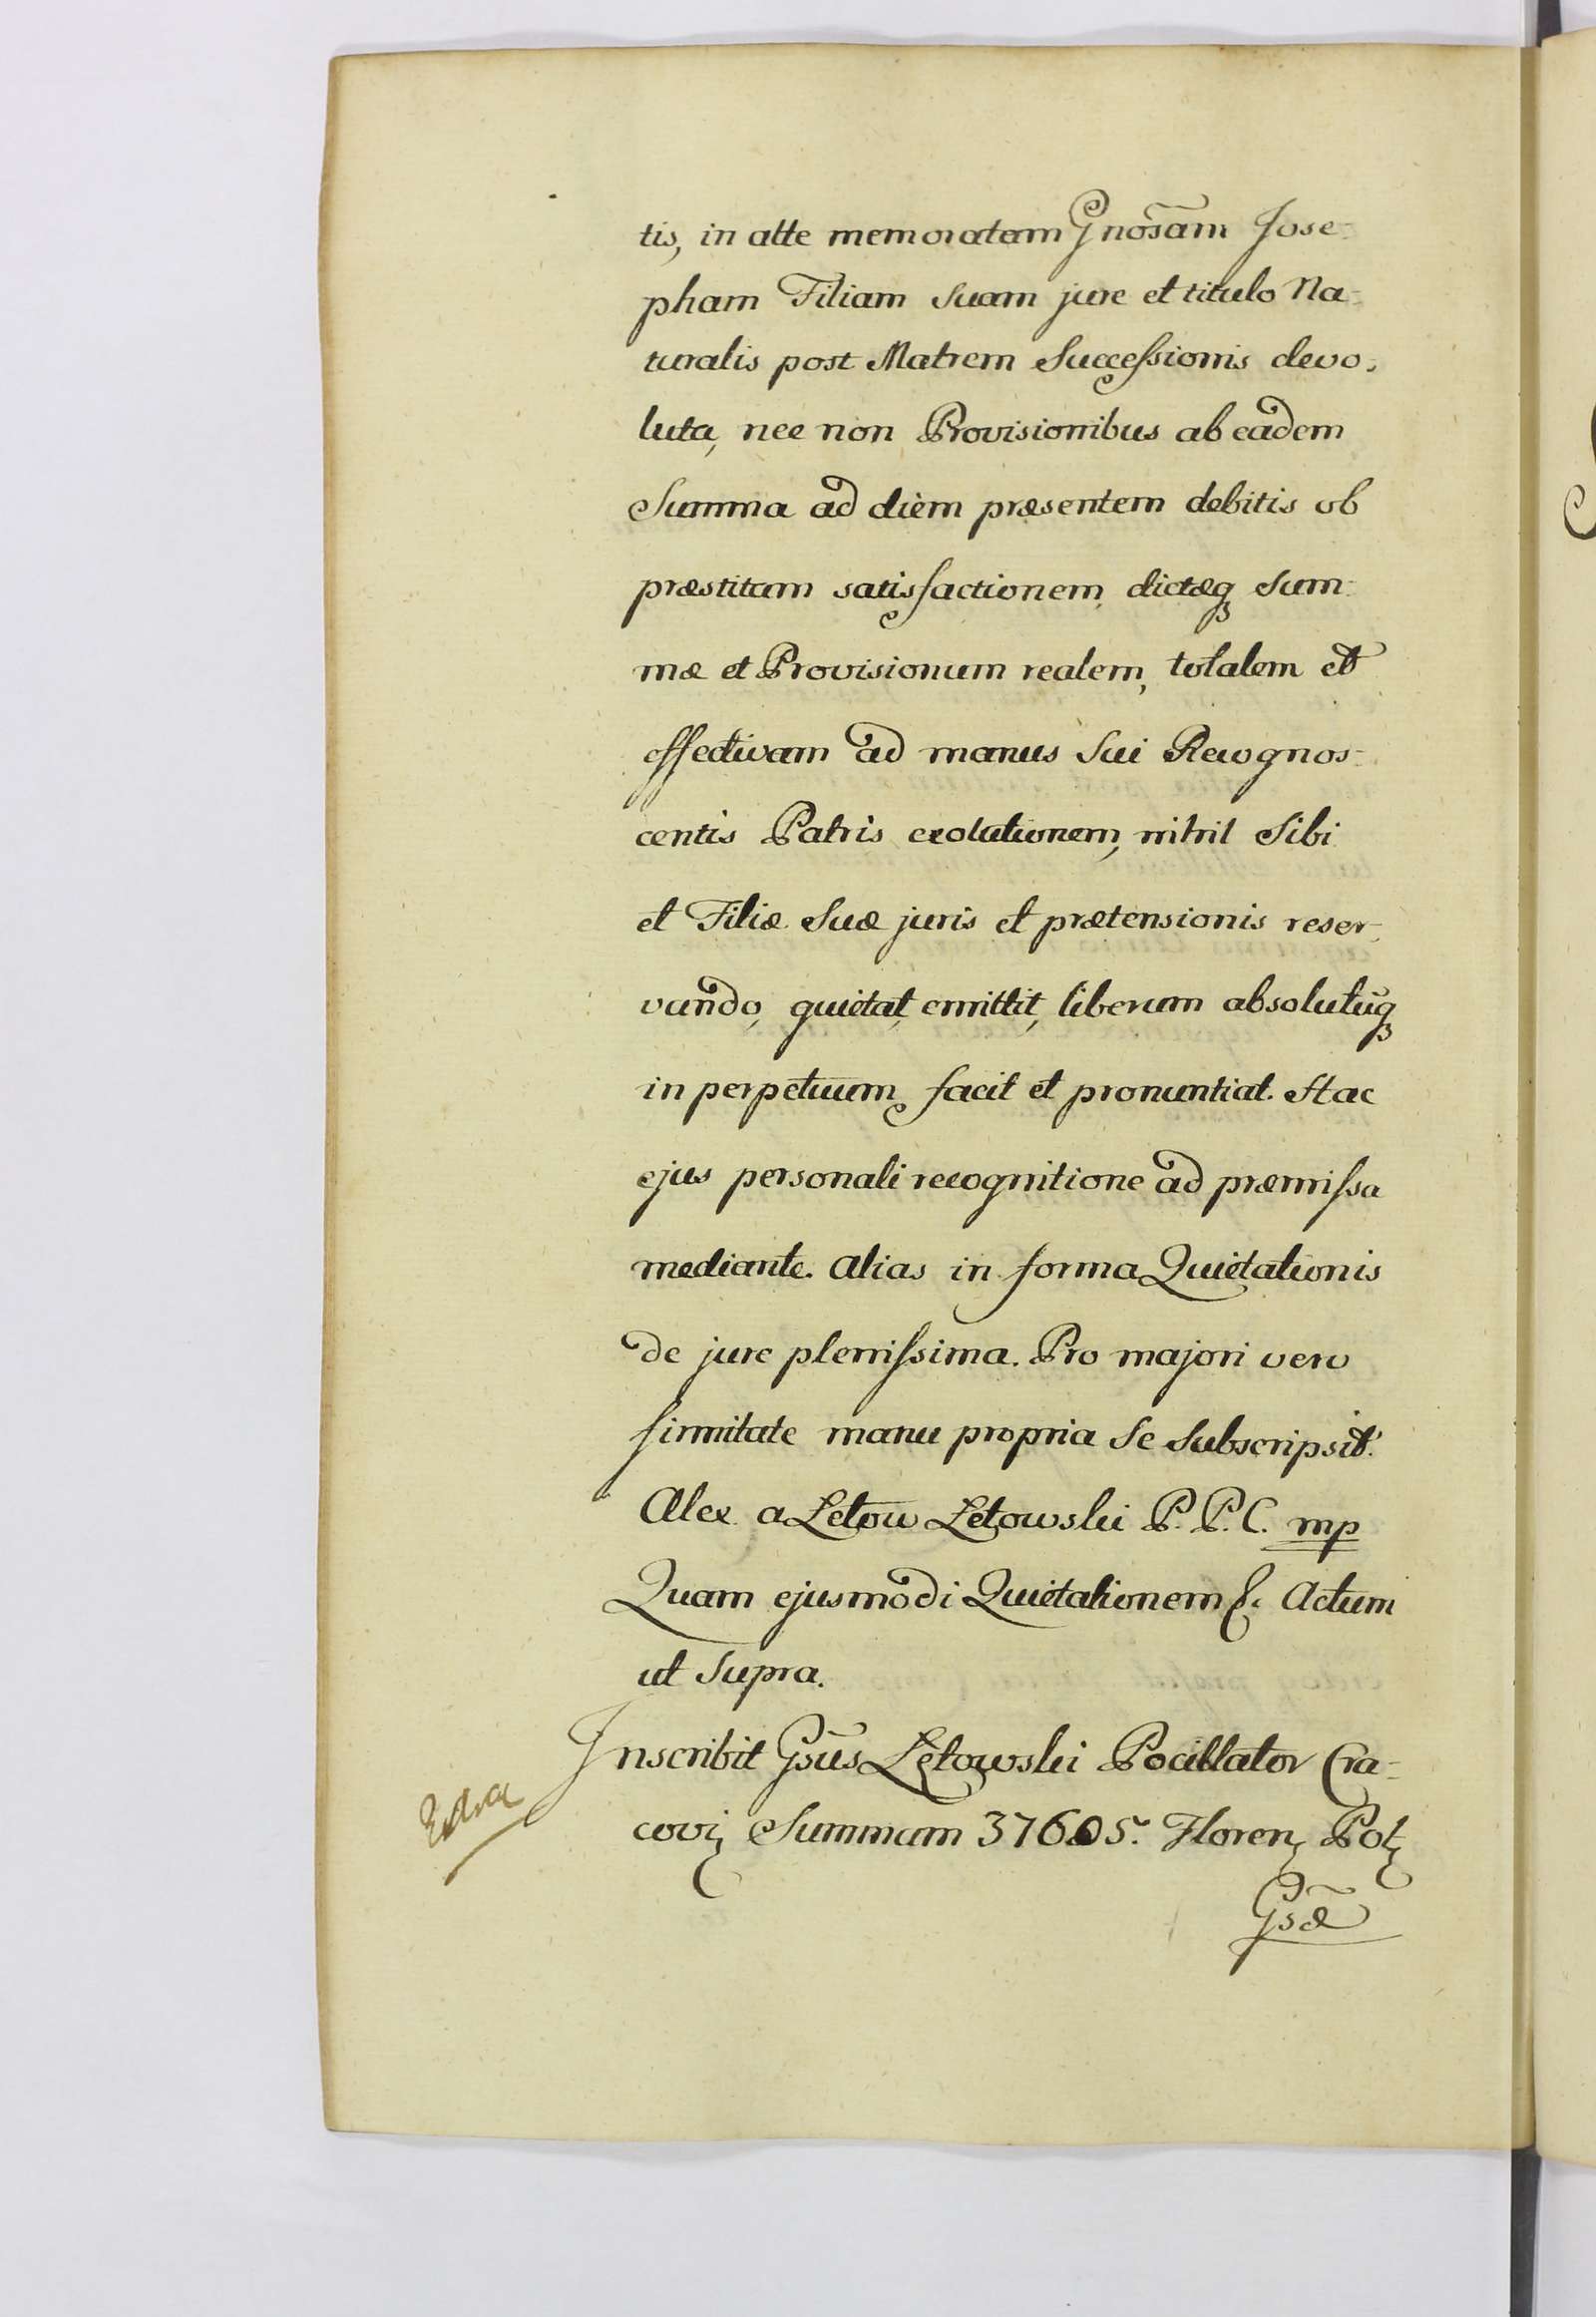 tis, in atte memoratam Gnosam Jose-
pham Filiam Suam jure et titulo Na-
turalis post Matrem Successionis devo-
luta, nec non Provisionibus ab eadem
Summa ad diem præsentem debitis ob
præstitam satisfactionem, dictæq Sum-
mæ et Provisionum realem, totalem et
effectivam ad manus Sui Recognos-
centis Patris exolutionem, nihil Sibi
et Filiæ Suæ juris et prætensionis reser-
vando, quietat, emittit, liberum absolutuq
in perpetuum facit et pronuntiat. Hac
ejus personali recognitione ad præmissa
mediante. Alias in forma Quietationis
de jure plenissima. Pro majori vero
firmitate manu propria Se Subscripsit.
Alex a Łetow Łetowski P. P. C. mp
Quam ejusmodi Quietationem &. Actum
ut Supra.
Inscribit Gsus Łętowski Pocillator Cra-
Extra
covi Summam 37605. Floren Pol
Gsæ